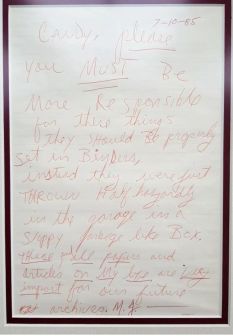 7-10-85
Candy, please
you MUST Be
More Responsible
for these things
they should Be properly
set in Binders,
instead they were just
THROWN Half hazardly
in the garage in a
sloppy garbage like Box.
these papers and
articles on My life are very
import for our future
archives. M.J.